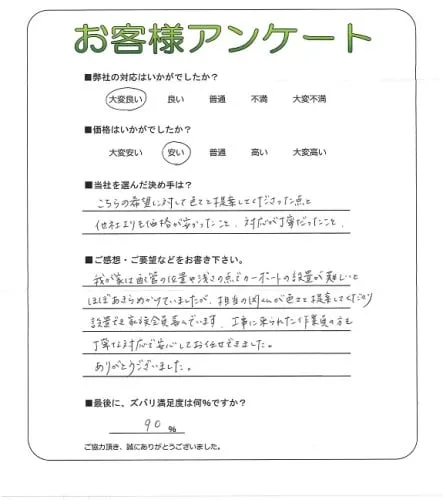 お客様アンケート
■弊社の対応はいかがでしたか?
大変良い 良い 普通 不満 大変不満
■価格はいかがでしたか?
大変安い 安い 普通 高い 大変高い
■当社を選んだ決め手は?
こちらの希望に対して色々と提案してくださった点と
他社よりも価格が安かったこと、対応が丁寧だったこと、
■ご感想・ご要望などをお書き下さい。
我が家は配管の位置や浅さの点でカーポートの設置が難しいと
ほぼあきらめかけていましたが、担当の さんが色々と提案してくださり
設置でき家族全員喜んでいます。工事に来られた作業員の方も
丁寧な対応で安心してお任せできました。
ありがとうございました。
■最後に、ズバリ満足度は何%ですか?
90 %
ご協力頂き、誠にありがとうございました。